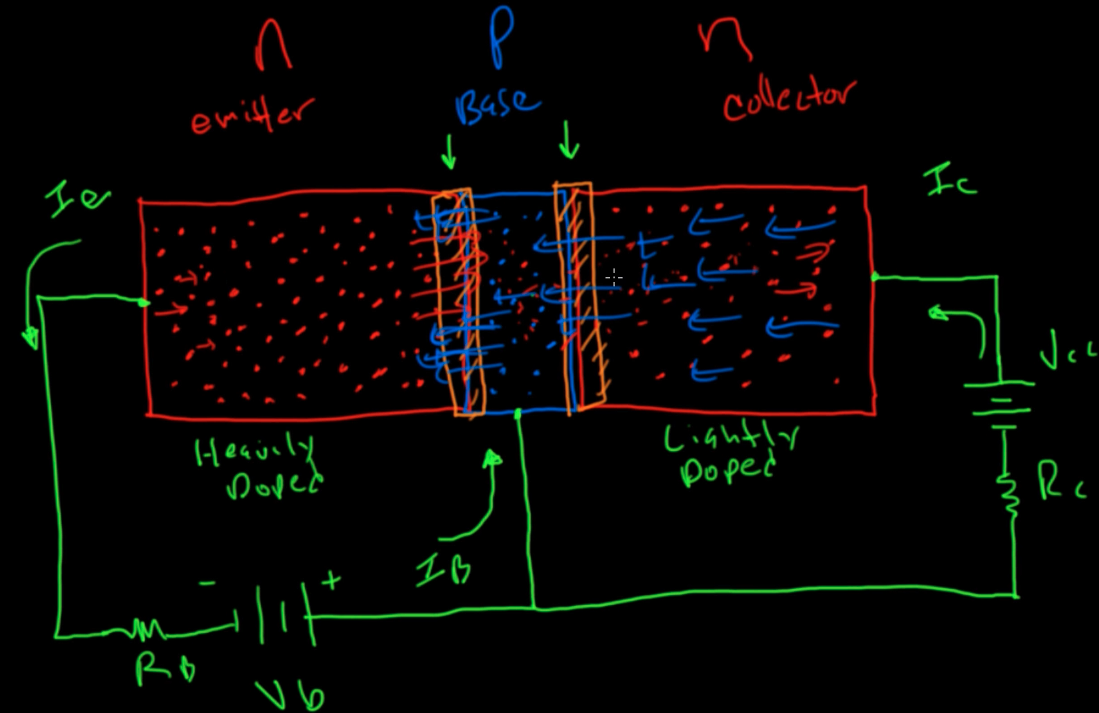 n
P
n
emitter
Base
collector
Ie
Ic
Vcc
Heavily
Doped
Lightly
Doped
Rc
IB
-
+
RB
Vb